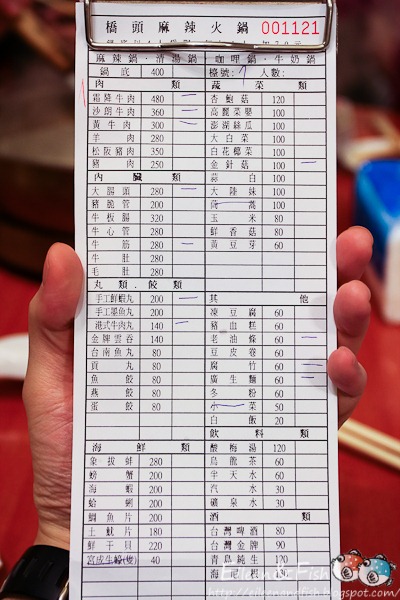 橋頭麻辣火鍋 001121
麻辣鍋．清湯鍋
咖哩鍋．牛奶鍋
鍋底 400
檯號：7 人數：
肉類
霜降牛肉 480 一
沙朗牛肉 360 一
黃牛肉 300 一
羊肉 280
松阪豬肉 350
豬肉 250
內臟類
大腸頭 280 一
豬脆管 200
牛板腸 320
牛心管 280
牛筋 280 一
牛肚 280
毛肚 280
丸類．餃類
手工鮮蝦丸 200 一
手工墨魚丸 200
港式牛肉丸 140 一
金牌雲吞 140
台南魚丸 80
貢丸 80
魚餃 80
燕餃 80
蛋餃 80
海鮮類
象拔蚌 280
螃蟹 200
海蝦 200
蛤蜊 200
鯛魚片 200
土魷片 180
鮮干貝 220
宮成生蠔(隻) 40
蔬菜類
杏鮑菇 120
高麗菜嬰 100
澎湖絲瓜 100
大白菜 100
白花椰菜 100
金針菇 100 一
蒜白 100
大陸妹 100
茼蒿 100
玉米 80
鮮香菇 80
黃豆芽 60
其他
凍豆腐 60
豬血糕 60
老油條 60 一
豆皮卷 60
腐竹 60 一
廣生麵 60 一
冬粉 60
小菜 50
白飯 20
飲料類
酸梅湯 120
烏龍茶 60
半天水 60
汽水 30
礦泉水 30
酒類
台灣啤酒 80
台灣金牌 90
青島純生 120
海尼根